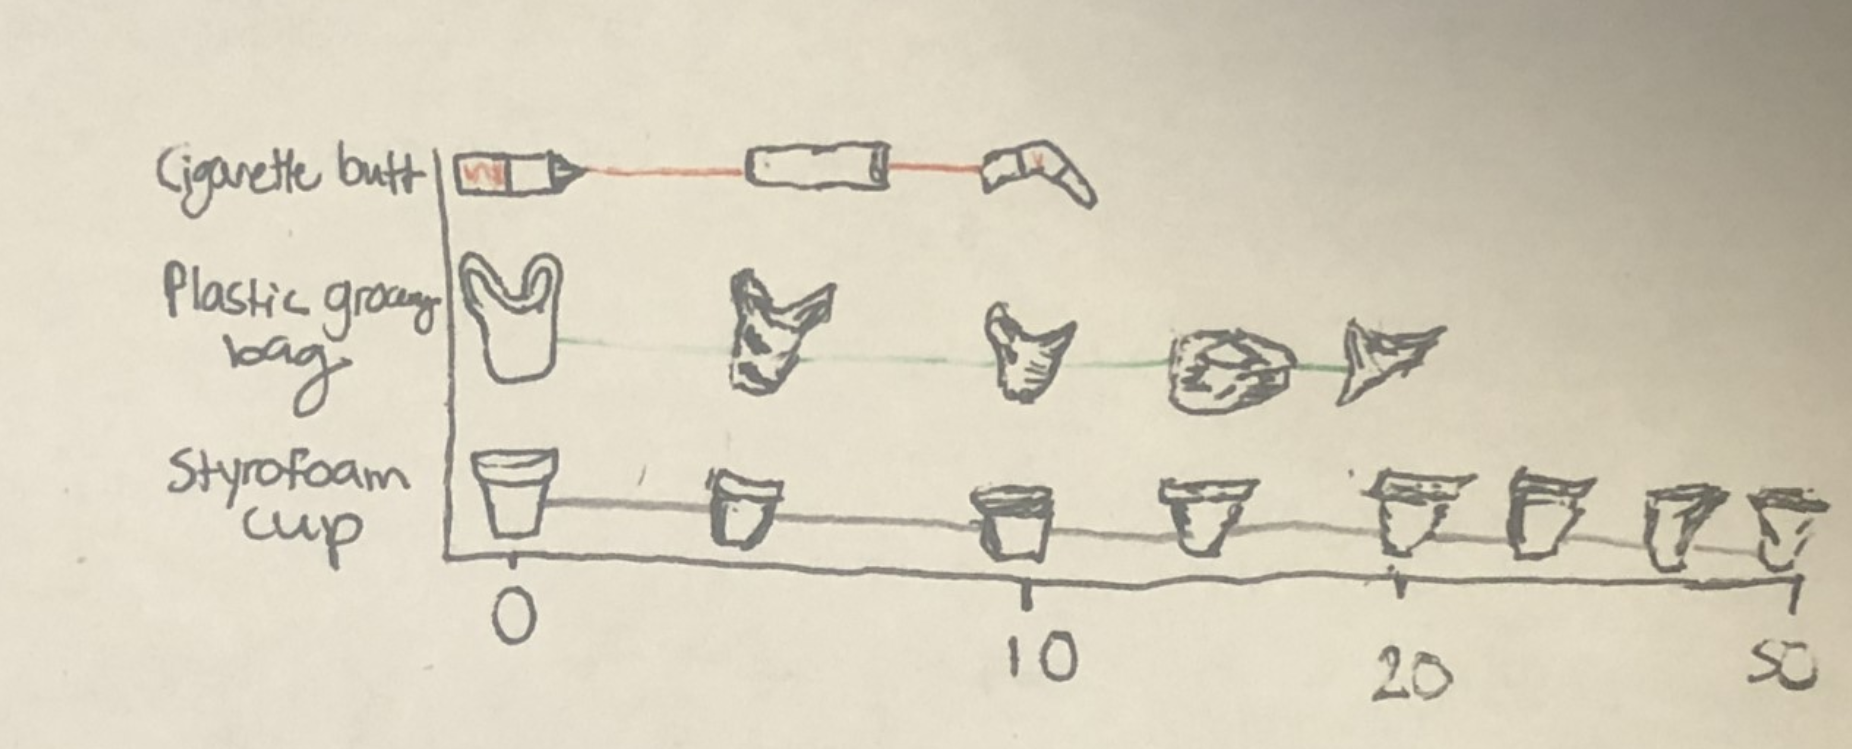 Cigarette butt
Plastic grocery
bag
Styrofoam
cup
0 10 20 50